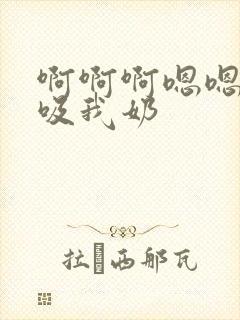 啊啊啊嗯嗯
吸我奶
拉 西那瓦